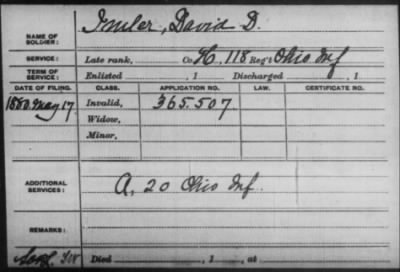 NAME OF SOLDIER: Imler, David D.
SERVICE: Late rank, Co. H, 118 Reg't Ohio Inf
TERM OF SERVICE: Enlisted , 1 Discharged , 1
DATE OF FILING. CLASS. APPLICATION NO. LAW. CERTIFICATE NO.
1880. May 17. Invalid, 365.507
Widow,
Minor,
ADDITIONAL SERVICES: A, 20 Ohio Inf.
REMARKS:
Died , 1 , at